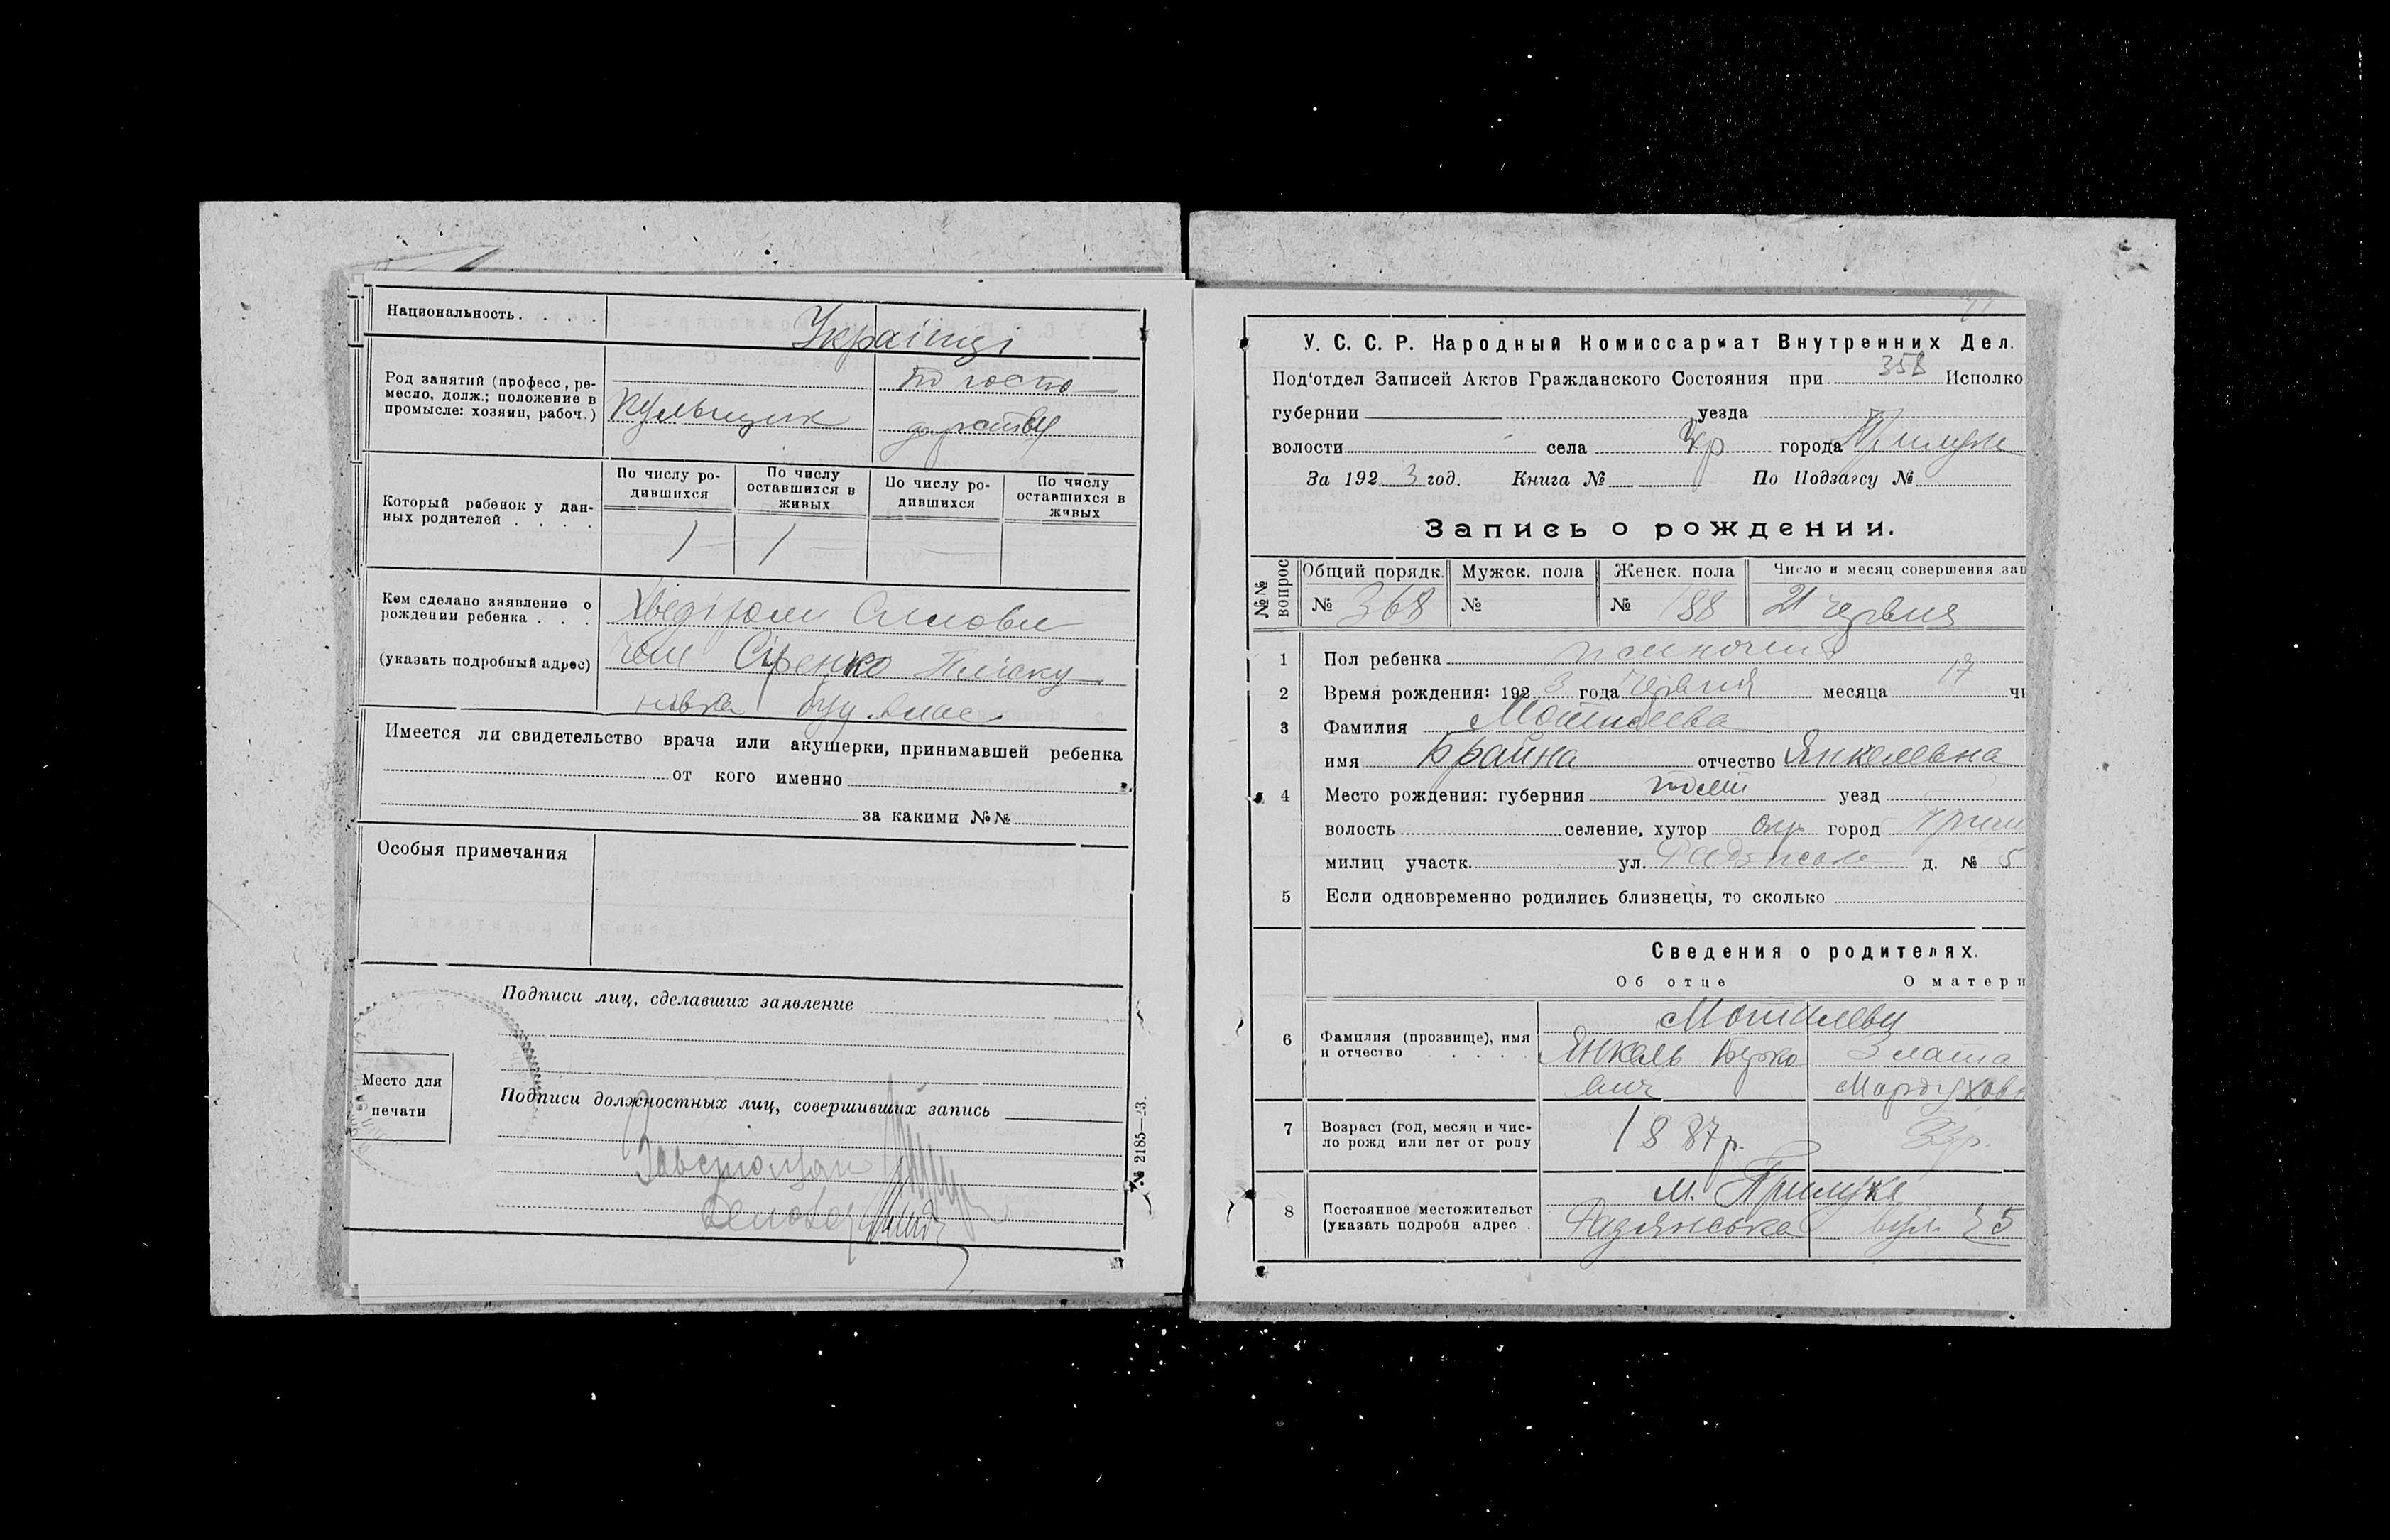 Национальность . . . . Українці
Род занятий (професс, ре-
месло, долж.; положение в
промысле: хозяин, рабоч.)
по госпо
дарству
Который ребенок у дан-
ных родителей . . . .
По числу ро-
дившихся
По числу
оставшихся в
живых
По числу ро-
дившихся
По числу
оставшихся в
живых
1 1
Кем сделано заявление о
рождении ребенка . . .
(указать подробный адрес)
чом Сіренко
Имеется ли свидетельство врача или акушерки, принимавшей ребенка
от кого именно
за какими №№
Особыя примечания
Подписи лиц, сделавших заявление
Место для
печати
Подписи должностных лиц, совершивших запись
№ 2185—23.
У. С. С. Р. Народный Комиссариат Внутренних Дел.
Под'отдел Записей Актов Гражданского Состояния при Исполко
губернии уезда
волости села города
За 1923 год. Книга № По Подзагсу №
Запись о рождении.
№№ вопрос
Общий порядк. Мужск. пола Женск. пола Число и месяц совершения зап
№ 368 № № 188 21 червня
1 Пол ребенка
2 Время рождения: 1923 года червня месяца 17 чи
3 Фамилия
имя Брайна отчество Янкелевна
4 Место рождения: губерния уезд
волость селение, хутор окр город
милиц участк. ул. д. № 5
5 Если одновременно родились близнецы, то сколько
Сведения о родителях.
Об отце О матери
6 Фамилия (прозвище), имя
и отчество . . . .
Янкель Берко Злата
вич Мордухов
7 Возраст (год, месяц и чис-
ло рожд или лет от роду
1887р. 33р.
8 Постоянное местожительст
(указать подробн адрес .
м. Прилука
Радянська вул. 25